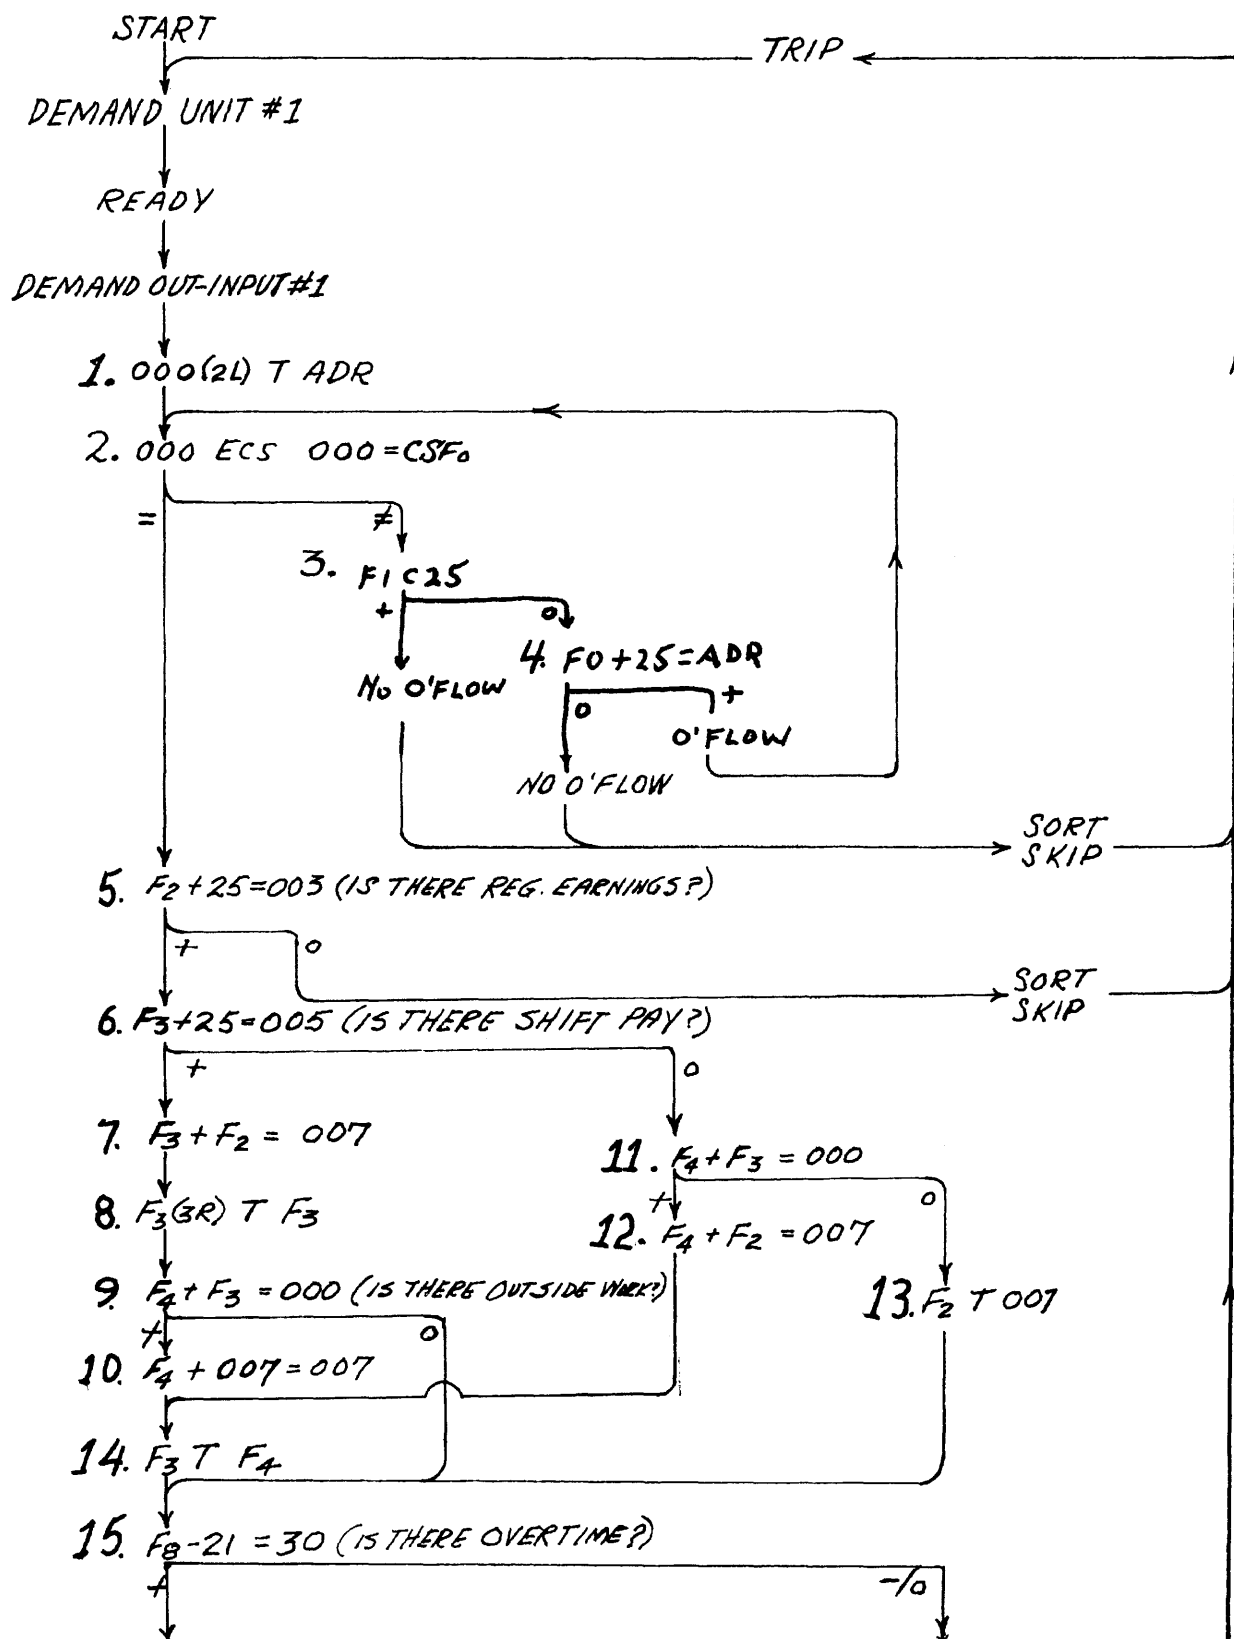 START
TRIP
DEMAND UNIT #1
READY
DEMAND OUT-INPUT #1
1. 000(2L) T ADR
2. 000 ECS 000 = CSF0
= ≠
3. F1 C 25
+ 0
4. F0 + 25 = ADR
NO O'FLOW
0 +
O'FLOW
NO O'FLOW
SORT
SKIP
5. F2 + 25 = 003 (IS THERE REG. EARNINGS?)
+ 0
SORT
SKIP
6. F3 + 25 = 005 (IS THERE SHIFT PAY?)
+ 0
7. F3 + F2 = 007
11. F4 + F3 = 000
+ 0
8. F3 (3R) T F3
12. F4 + F2 = 007
9. F4 + F3 = 000 (IS THERE OUTSIDE WORK?)
13. F2 T 007
+ 0
10. F4 + 007 = 007
14. F3 T F4
15. F8 - 21 = 30 (IS THERE OVERTIME?)
+ -/0